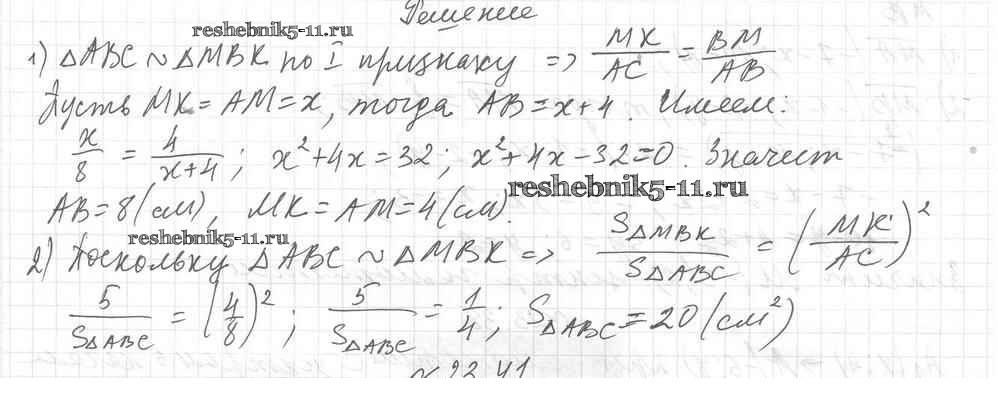 Решение
reshebnik5-11.ru
1) △ABC ~ △MBK по I признаку => MK/AC = BM/AB
Пусть MK = AM = x, тогда AB = x+4. Имеем:
x/8 = 4/(x+4); x²+4x=32; x²+4x-32=0. Значит
reshebnik5-11.ru
AB=8(см), MK=AM=4(см).
reshebnik5-11.ru
2) Поскольку △ABC ~ △MBK => S△MBK/S△ABC = (MK/AC)²
5/S△ABC = (4/8)²; 5/S△ABC = 1/4; S△ABC = 20(см²)